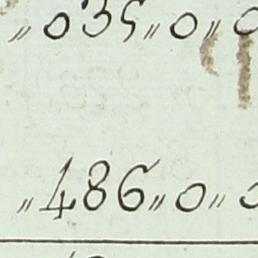 „035„0„0
„486„0„0